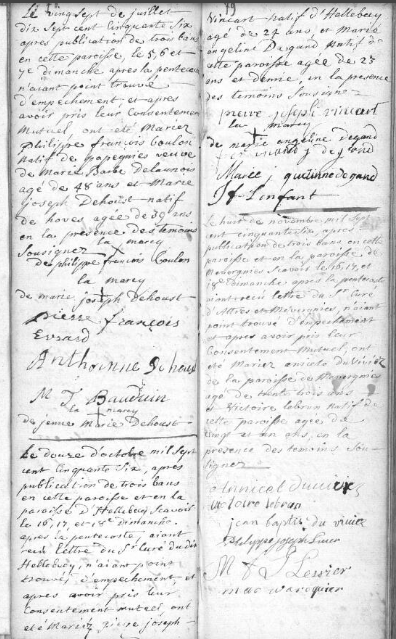 Le vingt sept de juillet
dix sept cent cinquante six
après publication de trois bans
en cette paroisse le 5, 6 et
7e dimanche après la pentecote
n'aiant point trouvé
d'empechement, et après
avoir pris leur consentement
mutuel, ont été Mariez
Philippe françois Coulon
natif de papegnies veuve
de Marie Barbe Delaunois
agé de 48 ans et Marie
Joseph Dehoust natif
de hoves agée de 39 ans
en la présence des temoins
sousignez
la marcq
De philippe françois Coulon
la marcq
de marie joseph Dehoust
pierre françois
Evrard
Anthoinne Dehoust
M J Bauduin
la marcq
de jenne marie Dehoust
Le douze d'octobre mil sept
cent cinquante six, après
publication de trois bans
en cette paroisse et en la
paroisse d'Hellebecq scavoir
le 16, 17, et 18e dimanche
après la pentecoste, aiant
reçu lettre du Sr curé du dit
Hellebecq, n'aiant point
trouvé d'empechement et
après avoir pris leur
Consentement mutuel, ont
eté Mariez pierre joseph
19
Vincart natif d'Hellebecq
agé de 27 ans, et Marie
angeline Degand natif de
cette paroisse agée de 23
ans et demie, in la presence
des temoins sousignez
pierre joseph vincart
la marcq
de marie angeline degand
j degand
Marie j degand
J f Lenfant
Le huit de novembre mil sept
cent cinquante six, après
publication de trois bans en cette
paroisse et en la paroisse de
scavoir le 16, 17, et
18e Dimanche après la pentecoste
aiant reçu lettre du Sr curé
n'aiant
point trouvé d'empechement
et après avoir pris leur
Consentement Mutuel, ont
eté Mariez
de la paroisse de
agé de trente trois ans
et Victoire lebrun natif de
cette paroisse agée de
vingt et un ans, en la
presence des temoins sou-
signez
victoire lebrun
jean baptis du
Philippe joseph
M f J Lessier